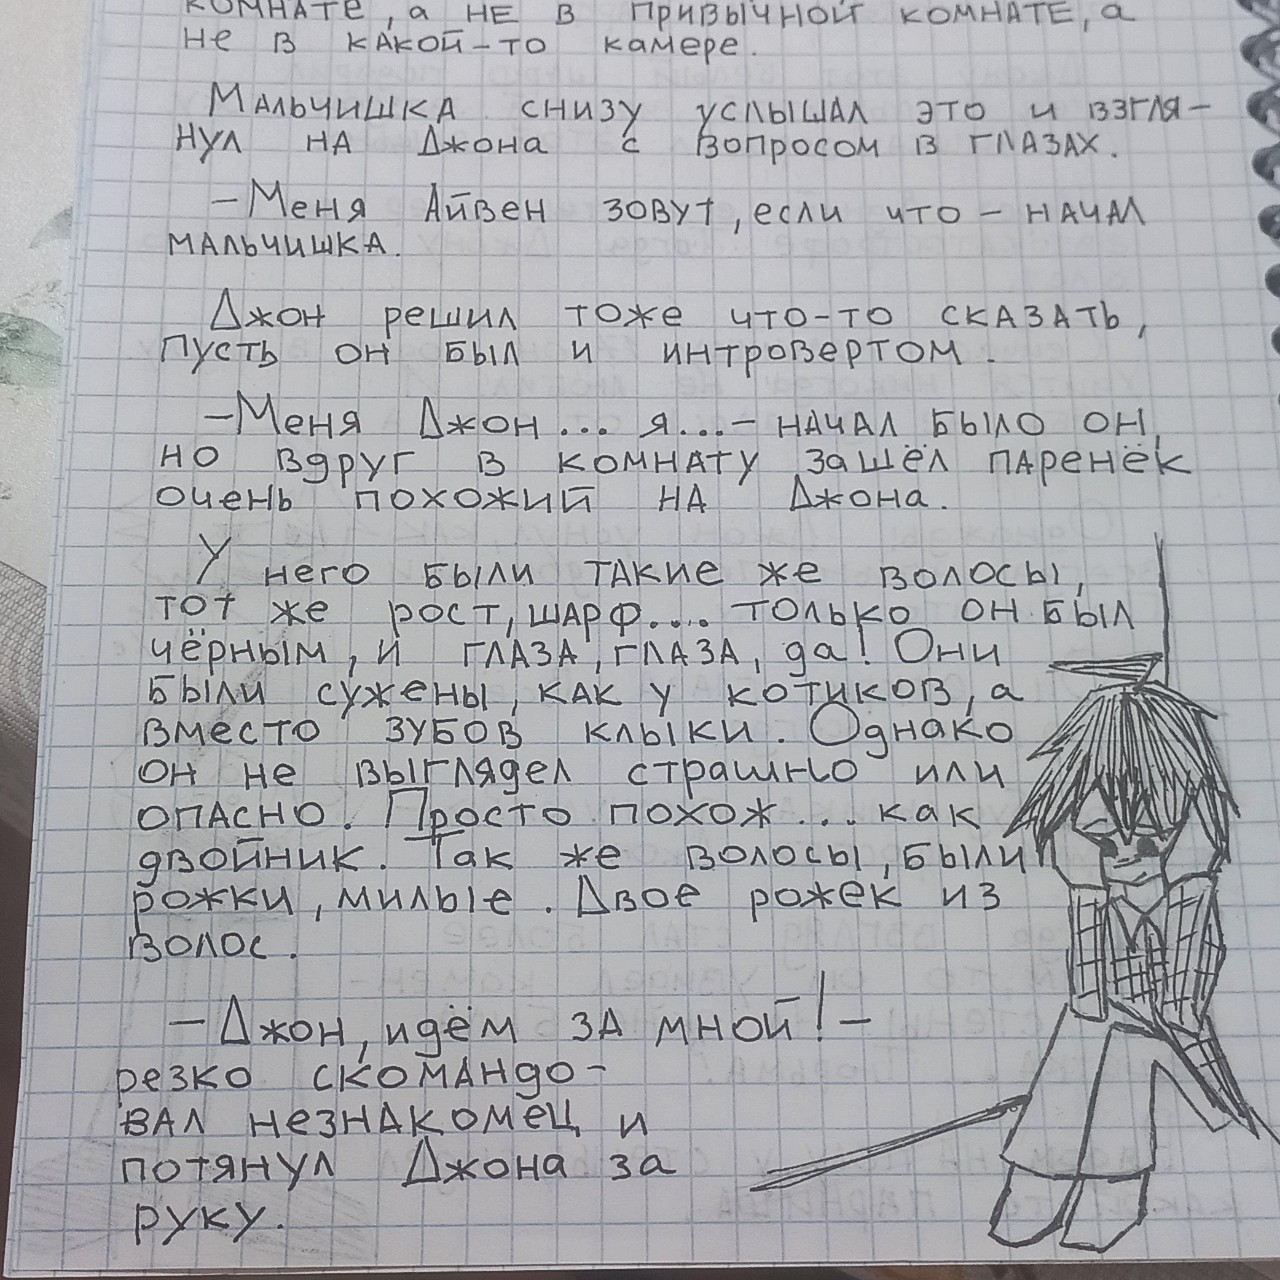 комнате, а не в привычной комнате, а
не в какой-то камере.
Мальчишка снизу услышал это и взгля-
нул на Джона с вопросом в глазах.
-Меня Айвен зовут, если что - начал
мальчишка.
Джон решил тоже что-то сказать,
пусть он был и интровертом.
-Меня Джон... я...- начал было он,
но вдруг в комнату зашёл паренёк
очень похожий на Джона.
У него были такие же волосы,
тот же рост, шарф.... только он был
чёрным, и глаза, глаза, да! Они
были сужены, как у котиков, а
вместо зубов клыки. Однако
он не выглядел страшно или
опасно. Просто похож... как
двойник. Так же волосы, были
рожки, милые. Двое рожек из
волос.
-Джон, идём за мной!-
резко скомандо-
вал незнакомец и
потянул Джона за
руку.